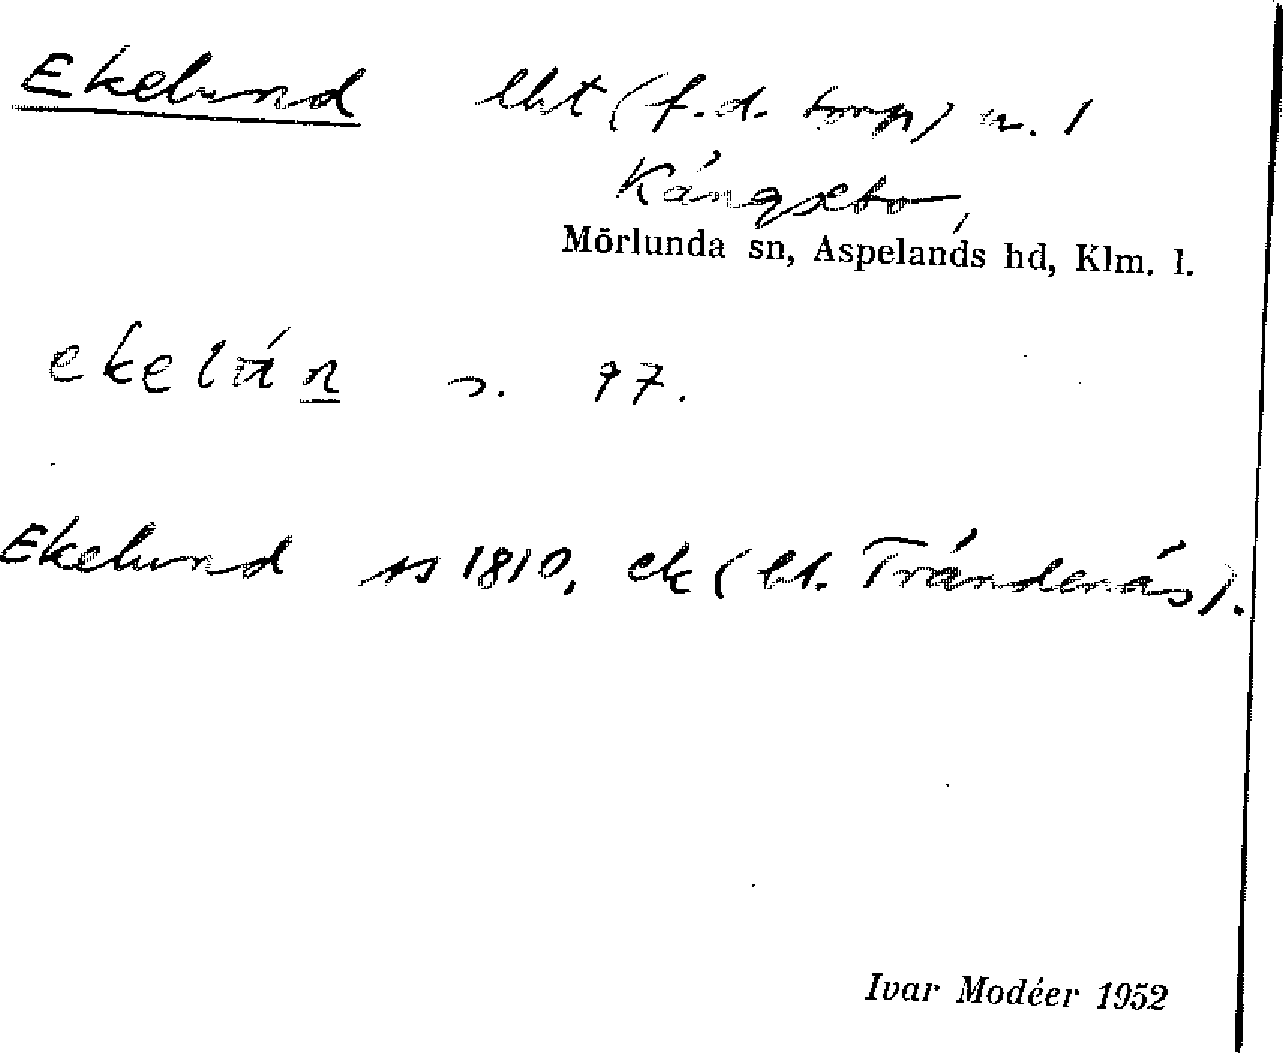 Ekelund lht (f.d. torp) u. 1
Kångsebo,
Mörlunda sn, Aspelands hd, Klm. l.
s. 97.
Ekelund ss 1810, ek (bl. Trändenäs).
Ivar Modéer 1952